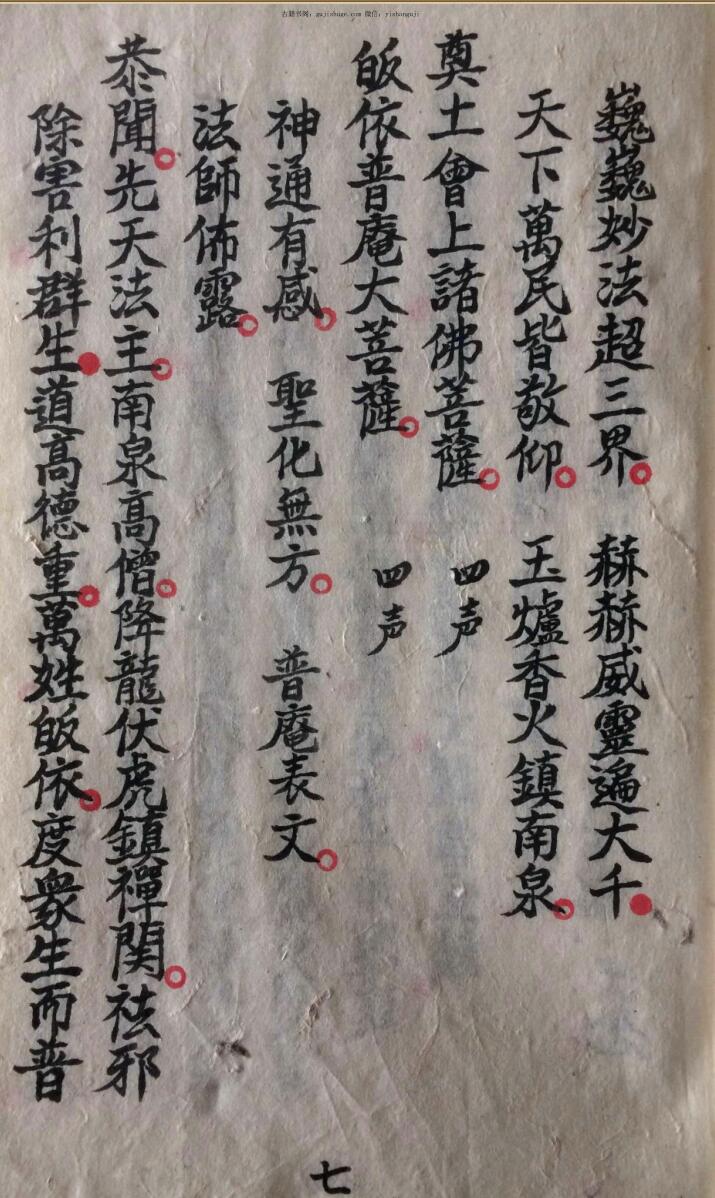 古籍书阁：gujishuge.com 微信：yishanguji
巍巍妙法超三界。 赫赫威靈遍大千●
天下萬民皆敬仰。 玉爐香火鎮南泉。
奠土會上諸佛菩薩。 四声
皈依普庵大菩薩。 四声
神通有感。 聖化無方。 普庵表文。
法師佈露。
恭聞。先天法主。南泉高僧。降龍伏虎鎮禪関。祛邪
除害利群生●道高德重。萬姓皈依。度衆生而普
七